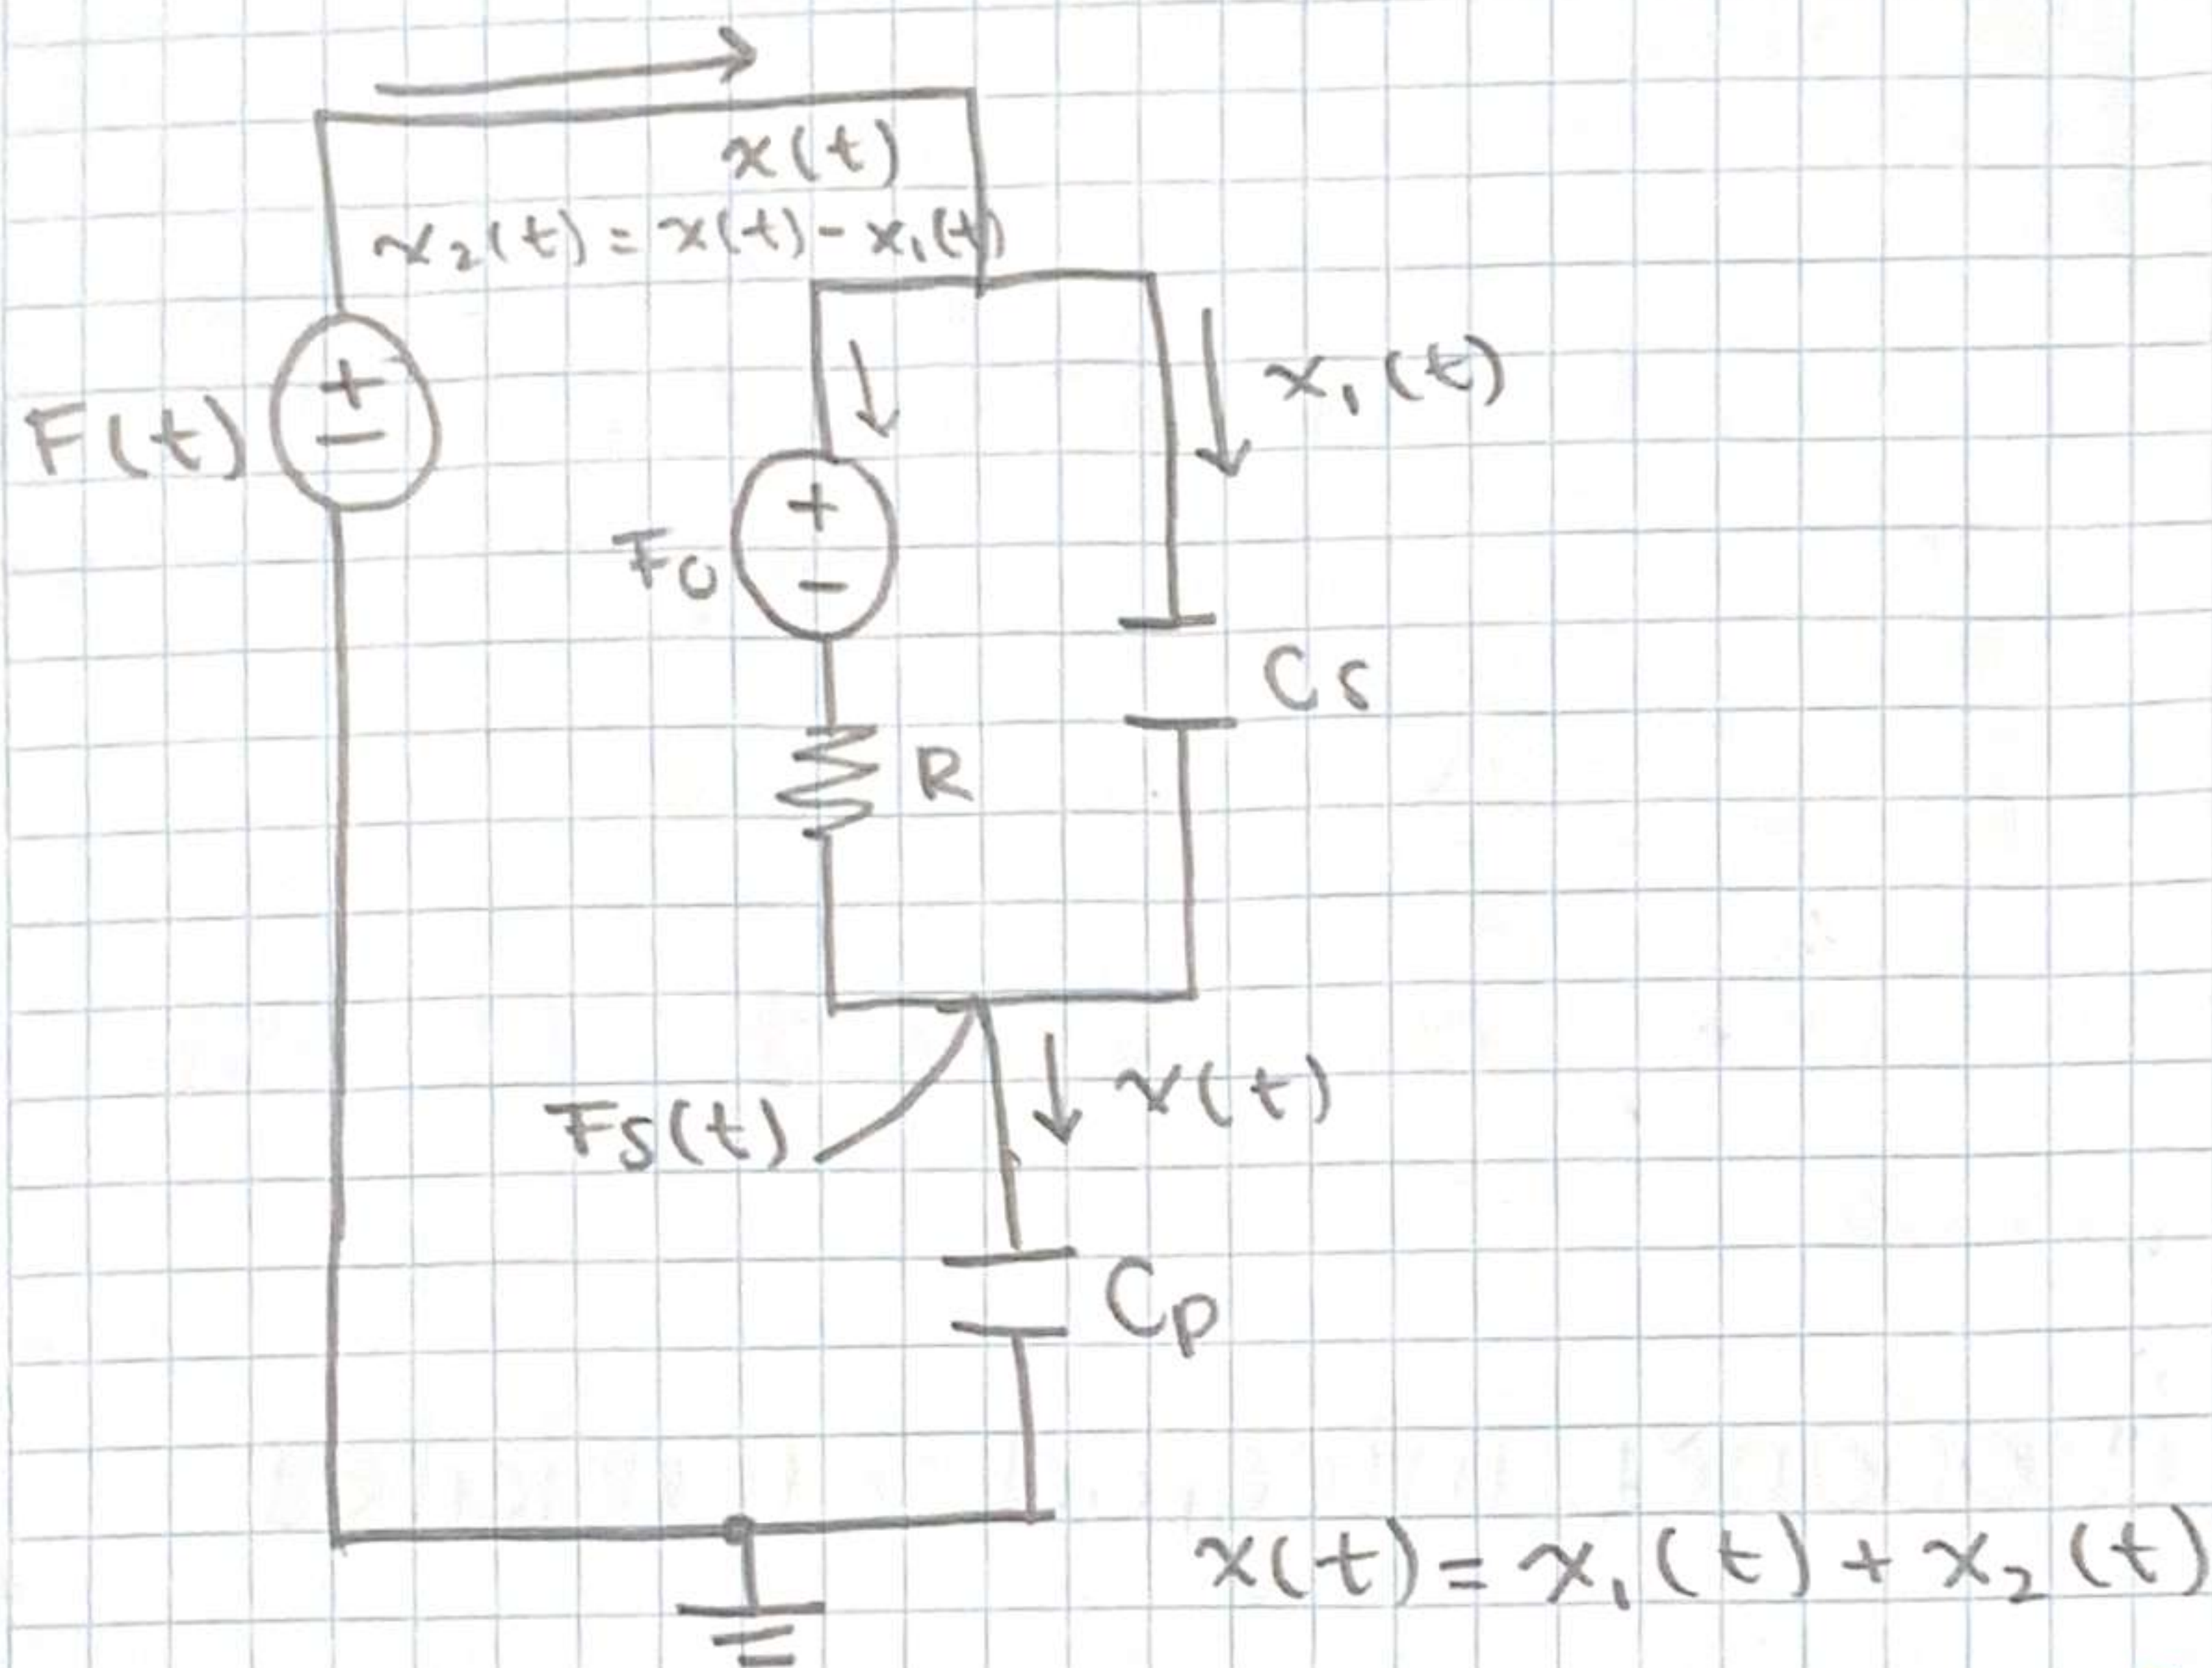 x(t)
x₂(t) = x(t) - x₁(t)
x₁(t)
F(t)
+
−
F₀
+
−
Cs
R
Fs(t)
x(t)
Cp
x(t) = x₁(t) + x₂(t)